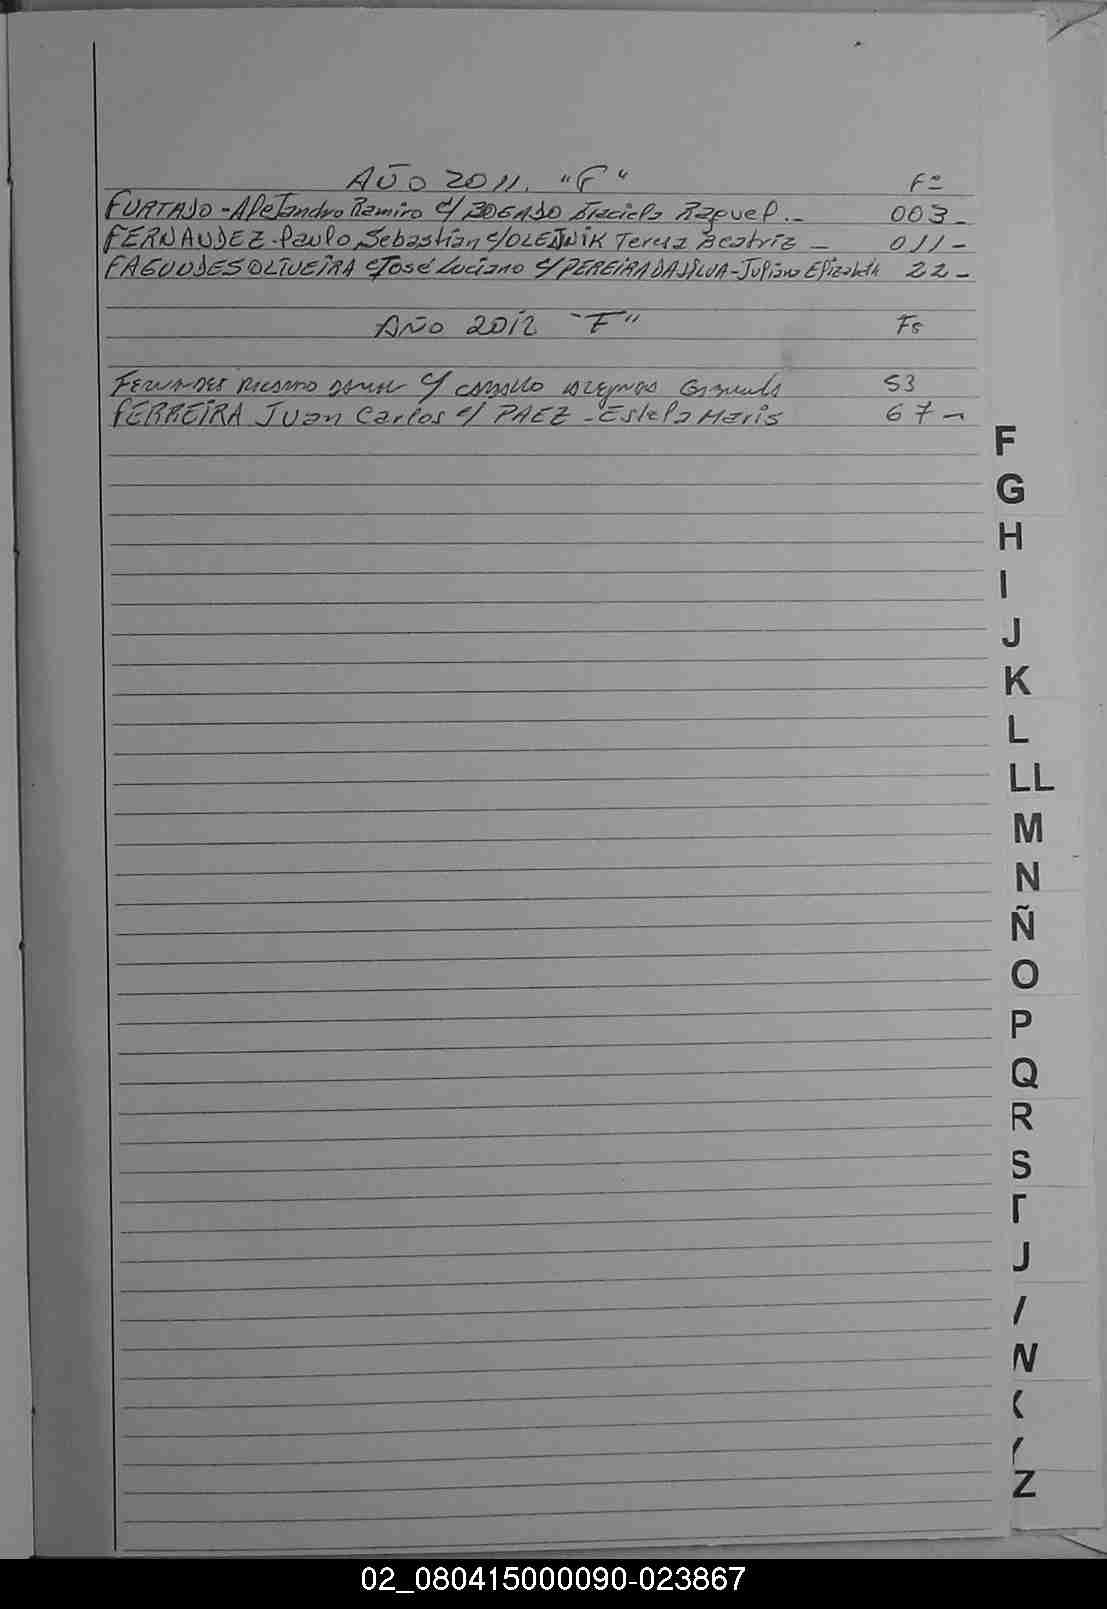 AÑO 2011. "F" Fº
FURTADO - Alejandro Ramiro c/ BOGADO Graciela Raquel.- 003-
FERNANDEZ - Paulo Sebastián c/ OLEJNIK Teresa Beatriz - 011-
FAGUNDES OLIVEIRA José Luciano c/ PEREIRA DA SILVA - Juliana Elizabeth 22-
AÑO 2012 "F" Fs
Fernandes Ricardo Daniel c/ 53
FERREIRA Juan Carlos c/ PAEZ - Estela Maris 67-
F
G
H
I
J
K
L
LL
M
N
Ñ
O
P
Q
R
S
Z
02_080415000090-023867